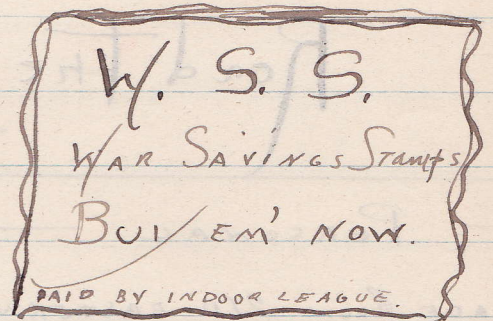 W. S. S.
WAR SAVINGS STAMPS
BUY EM' NOW.
PAID BY INDOOR LEAGUE.